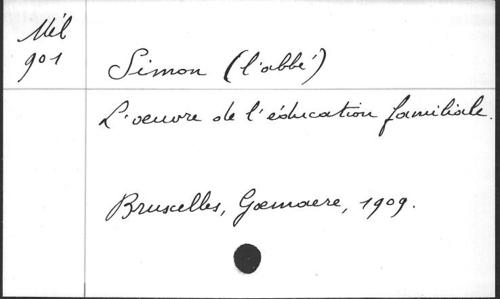 Mél
901
Simon (l'abbé)
L'oeuvre de l'éducation familiale.
Bruxelles, Goemaere, 1909.